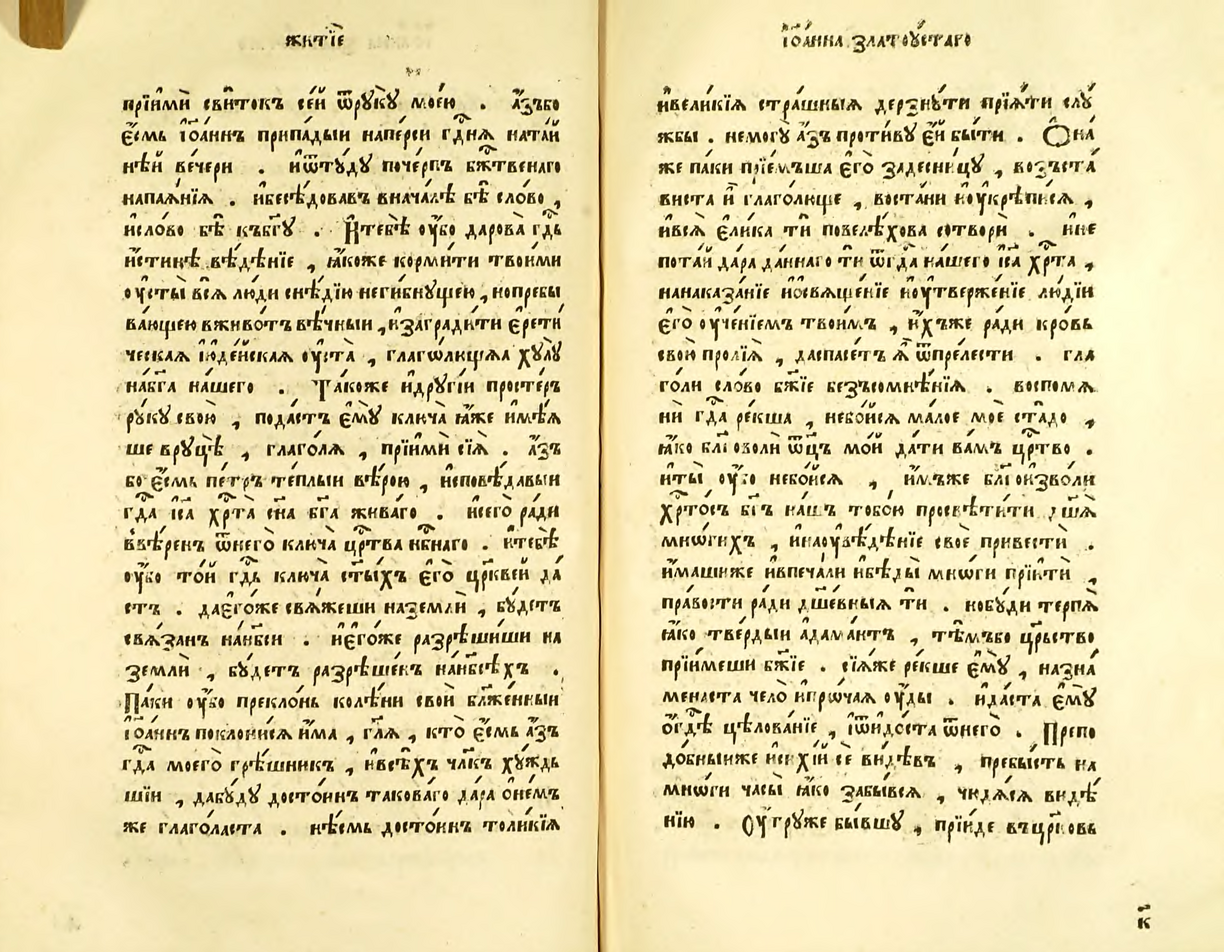 житїе
прїими свитокъ сей ѿрукꙋ моею . азъбо
есмь їоаннъ припадыи наперси гднѧ натай
нѣй вечери . иѿтꙋдꙋ почерпъ бжтвенаго
напаѧнїѧ . ибесѣдовавъ вначалѣ бѣ слово ,
ислово бѣ къбгꙋ . Итебѣ оубо дарова гдь
истинѣ вѣдѣнїе , ꙗкоже кормити твоими
оусты всѧ люди снѣдїю негибнꙋщею , нопребы
вающею вживотъ вѣчныи , изаградити ерети
ческаѧ їюдейскаѧ оуста , глаголищѧа хꙋлꙋ
набга нашего . Такоже идрꙋгїи простеръ
рꙋкꙋ свою , подастъ емꙋ ключа ꙗже имѣѧ
ше врꙋцѣ , глаголѧ , прїими сїѧ . азъ
бо есмь петръ теплыи вѣрою , исповѣдавыи
гда іса хрта сна бга живаго . исего ради
ввѣренъ ѿнего ключа цртва нбнаго . итебѣ
оубо той гдь ключа стыхъ его црквей да
стъ . даегоже свѧжеши наземли , бꙋдетъ
свѧзанъ нанбси . иегоже разрѣшиши на
земли , бꙋдетъ разрѣшенъ нанбсѣхъ .
Паки оубо преклонь колѣни свои блженныи
їоаннъ поклонисѧ има , глѧ , кто есмь азъ
гда моего грѣшникъ , ивсѣхъ члкъ хꙋждь
шїи , дабꙋдꙋ достоинъ таковаго дара онемъ
же глаголаста . нѣсмь достоинъ толикїѧ
їоанна златоꙋстаго
ивеликїѧ страшныѧ дерзнꙋти прїѧти слꙋ
жбы . немогꙋ азъ противꙋ ей быти . Она
же паки прїемъша его задесницꙋ , возъста
виста и глаголюще , востани иꙋкрѣписѧ ,
ивсѧ елика ти повелѣхова сотвори . ине
потай дара даннаго ти ѿгда нашего іса хрта ,
нанаказанїе иосвѧщенїе иоутверженїе людїи
его оученїемъ твоимъ , ихъже ради кровь
свою пролїѧ , даспасетъ ѧ ѿпрелести . гла
голи слово бжїе безъсомнѣнїѧ . воспомѧ
ни гда рекша , небойсѧ малое мое стадо ,
ꙗко блгоизволи ѿцъ мой дати вамъ цртво .
иты оубо небойсѧ , имъже блгоизволи
хртосъ бгъ нашъ тобою просвѣтити дшѧ
мнѡгихъ , инаоувѣдѣнїе свое привести .
имашиже ивпечали ибѣды мнѡги прїити ,
правости ради дшевныѧ ти . нобꙋди терпѧ
ꙗко твердыи адамантъ , тѣмъбо црьство
прїимеши бжїе . сїѧже рекше емꙋ , назна
менаста чело ипрѡчаѧ оуды . идаста емꙋ
огдѣ цѣлованїе , їѿидоста ѿнего . Препо
добныиже исихїи се видѣвъ , пребысть на
мнѡги часы ꙗко забывсѧ , чюдѧсѧ видѣ
нїю . Оутрꙋже бывшꙋ , прїиде въцрковь
к